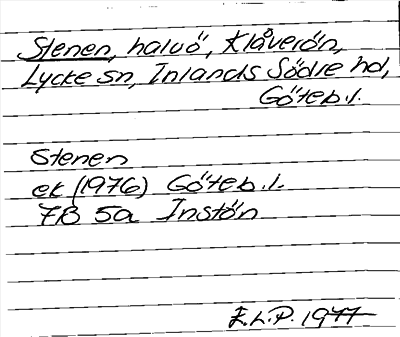 Stenen, halvö, Klåverön,
Lycke sn, Inlands Södre hd,
Göteb.l.
Stenen
ek (1976) Göteb.l.
7B 5a Instön
E.L.P. 1977